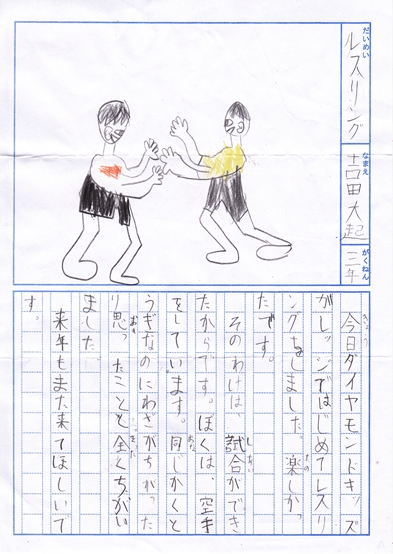 だいめい
ルスリング
なまえ
吉田大起
がくねん
三年
きょう
今日ダイヤモンドキッズ
がレッジではじめてレスリ
たの
ングをしました。楽しかっ
たです。
しあい
そのわけは、試合ができ
たからです。ぼくは、空手
おな
をしています。同じかくと
うぎなのにわざがちがった
おも
り思ったことと全くちがい
ました。
来年もまた来てほしいで
す。